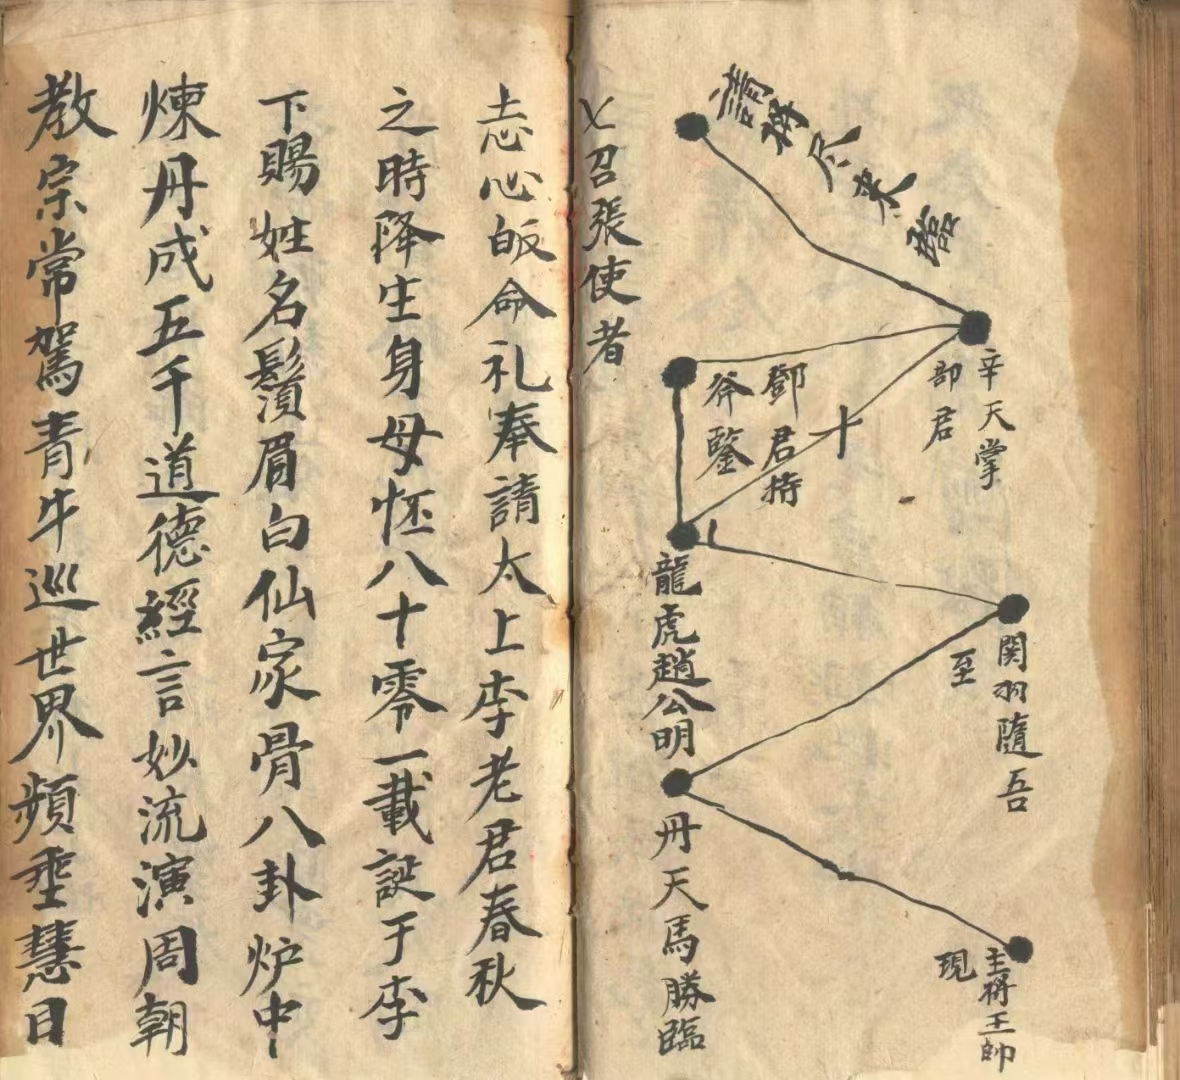 主將王帥現
丹天馬勝臨
関羽隨吾至
龍虎趙公明
鄧君持斧鑿
辛天掌部君
請將尽來
七召張使者
志心皈命礼奉請太上李老君春秋
之時降生身母怀八十零一載誕于李
下賜姓名鬚眉白仙家骨八卦炉中
煉丹成五千道德經言妙流演周朝
教宗常駕青牛巡世界頻垂慧目